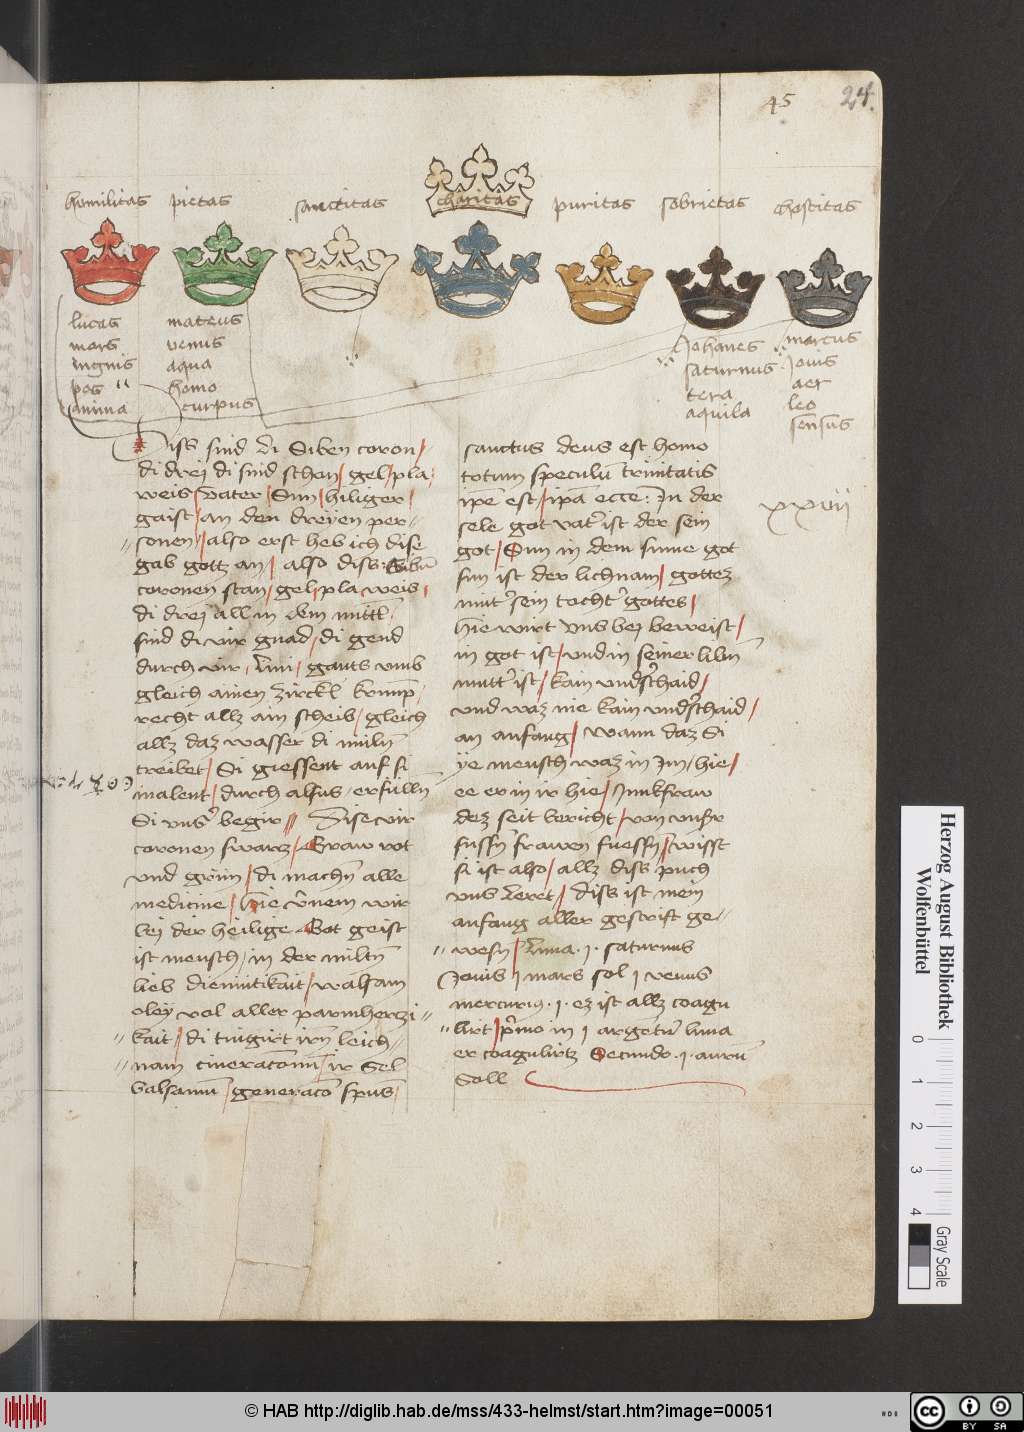 45 24.
humilitas pietas sanctitas charitas puritas sobrietas chastitas
lucas
mars
ingnis
pos
anima
mateus
venus
aqua
homo
curpus
Johanes
saturnus
tera
aquila
marcus
Jovis
aer
leo
sensus
Diss sind di Siben coron
di drej di sind schon gel pla
weis vater Sun hiliger
gaist an den dreyen per-
sonen also erst heb ich dise
gab gottz an also diss Siben
coronen stan gel pla weis
di drej all in dem mittl
sind di vir gnad di gend
durch vir gantz umb
gleich ainen zirckl krump
recht allz ain scheib gleich
allz daz wasser di miln
treibet Si giessent auf si
malent durch alsus erfulln
Si uns begir Dise vir
coronen swarz Graw rot
und grun di machn alle
medicine Hie wir
bej der heilige Got geist
ist mensch in der miltn
lieb diemutikait walsam
oley vol aller parmherzi
kait di tingirt irn leich
nam ir Sel
balsamum generatio spus
sanctus deus est homo
totum speculu trinitatis
ipe est ipa ecce: In der
sele got vatr ist der sein
got Sun in dem sinne got
sun ist der lichnam gottez
mutr sein tochtr gottes
hie wirt uns bej beweist
in got ist und in seiner libn
muttr ist kain undrschaid
und waz nie kain undrschaid
an anfang wann daz Si
ye mensch waz in Im hie
ee er in ir hie Junkfraw
dez seit bericht von unsr
sussn frawen fuessn wisst
si ist also allz diss puch
uns leret diss ist mein
anfang aller geschrift ge-
wesn luna .i. saturnus
Jovis i mars sol i venus
mercurius .i. ez ist allz coagu
lirt primo in i argentu luna
er coagulirtz Secundo .i. auru
Soll
xxvii
Herzog August Bibliothek
Wolfenbüttel
0 1 2 3 4
Gray Scale
© HAB http://diglib.hab.de/mss/433-helmst/start.htm?image=00051
HAB
cc BY SA